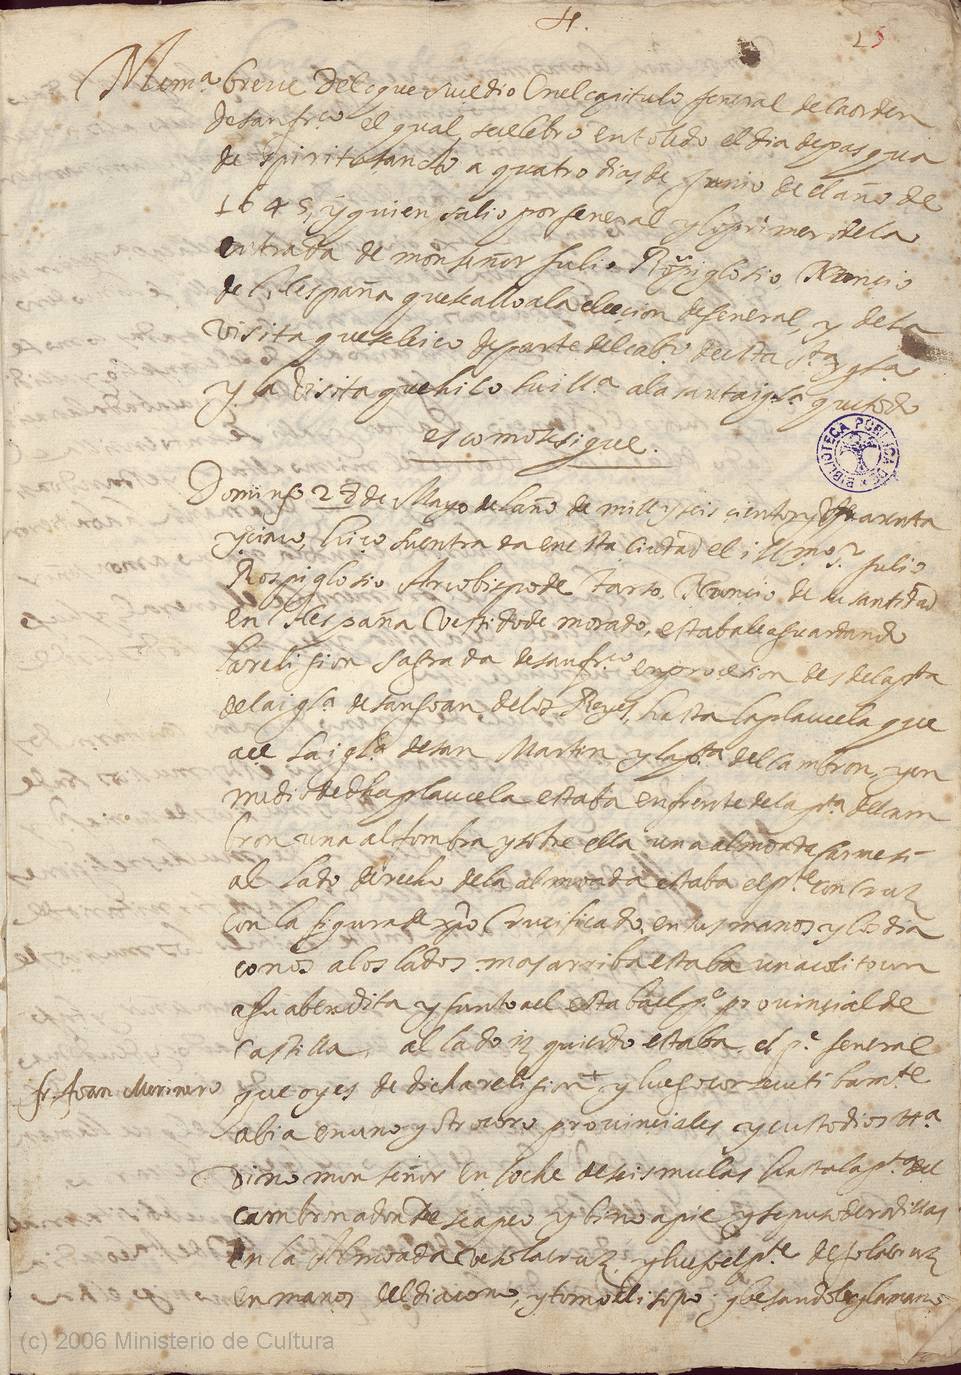 H.
25
Mem.ª breve Del que sucedio En el capitulo general de la orden
de san fr.co el qual se celebro en toledo el dia de pasqua
de spiritu sancto a quatro dias de Junio de el año de
1645, y quien salio por general y lo primero de la
entrada de monseñor Julio Rospiglosio, Nuncio
de España que se allo a la elecion de general, y de la
visita que se le hiço de parte del cab.º de sta S.ta ygl.ª
y la visita que hiço su ill.ª a la santa igl.ª que todo
es como se sigue.
Domingo 28 de Mayo del año de mill y seis cientos y quarenta
y cinco, hiço su entrada en esta ciudad el ill.mo S.r Julio
Rospiglosio Arcobispo de Tarso, Nuncio de su santidad
en España Vestido de morado, estabale aguardando
la religion sagrada de san fr.co en procesion desde la p.ta
de la igl.ª de san Joan de los Reyes, hasta la plaçuela que
ace la igl.ª de san Martin y la p.ta del Cambron, y en
medio de dha plaçuela estaba enfrente de la p.ta del cam
bron una alfombra y sobre ella una almoada carmesi
al lado derecho de la almoada estaba el p.te con Cruz
con la figura de xpo Crucificado, en sus manos y los dia
conos a los lados mas arriba estaba un acolito con
agua bendita y junto a el estaba el p.e provincial de
Castilla, al lado iz quierdo estaba, el p.e general
fr. Joan Merinero
que oy es de dicha religion + y luego consecutibam.te
abia en uno y otro coro provinciales y custodios
Vino monseñor En Coche de seis mulas hasta la p.ta del
cambron adonde se apeo y bino a pie y se puso de rodillas
En la Almoada Veso la cruz, y luego el p.te dejo la cruz
En manos del diacono, y tomo el isopo, y besandole la mano
BIBLIOTECA PUBLICA DE
(c) 2006 Ministerio de Cultura